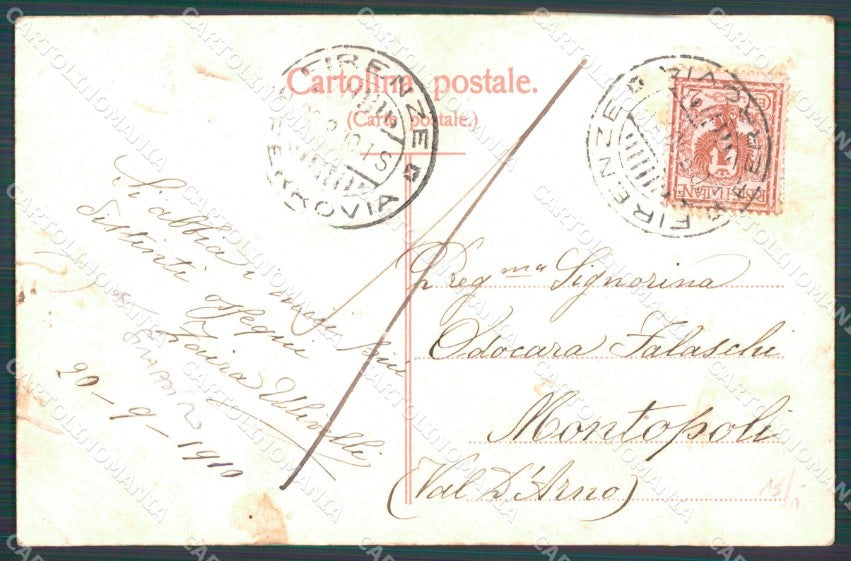 Cartolina postale.
(Carte postale.)
FIRENZE
FERROVIA
FIRENZE
FERROVIA
Si abbia i miei più
distinti ossequi
Zaira Ulivelli
20-9-1910
Preg ma Signorina
Odocara Falaschi
Montopoli
(Val D'Arno)
CARTOLINOMANIA